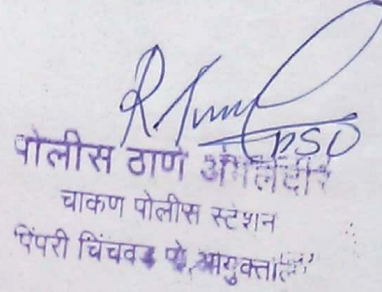 PSO
पोलीस ठाणे अंमलदार
चाकण पोलीस स्टेशन
पिंपरी चिंचवड पो. आयुक्तालय